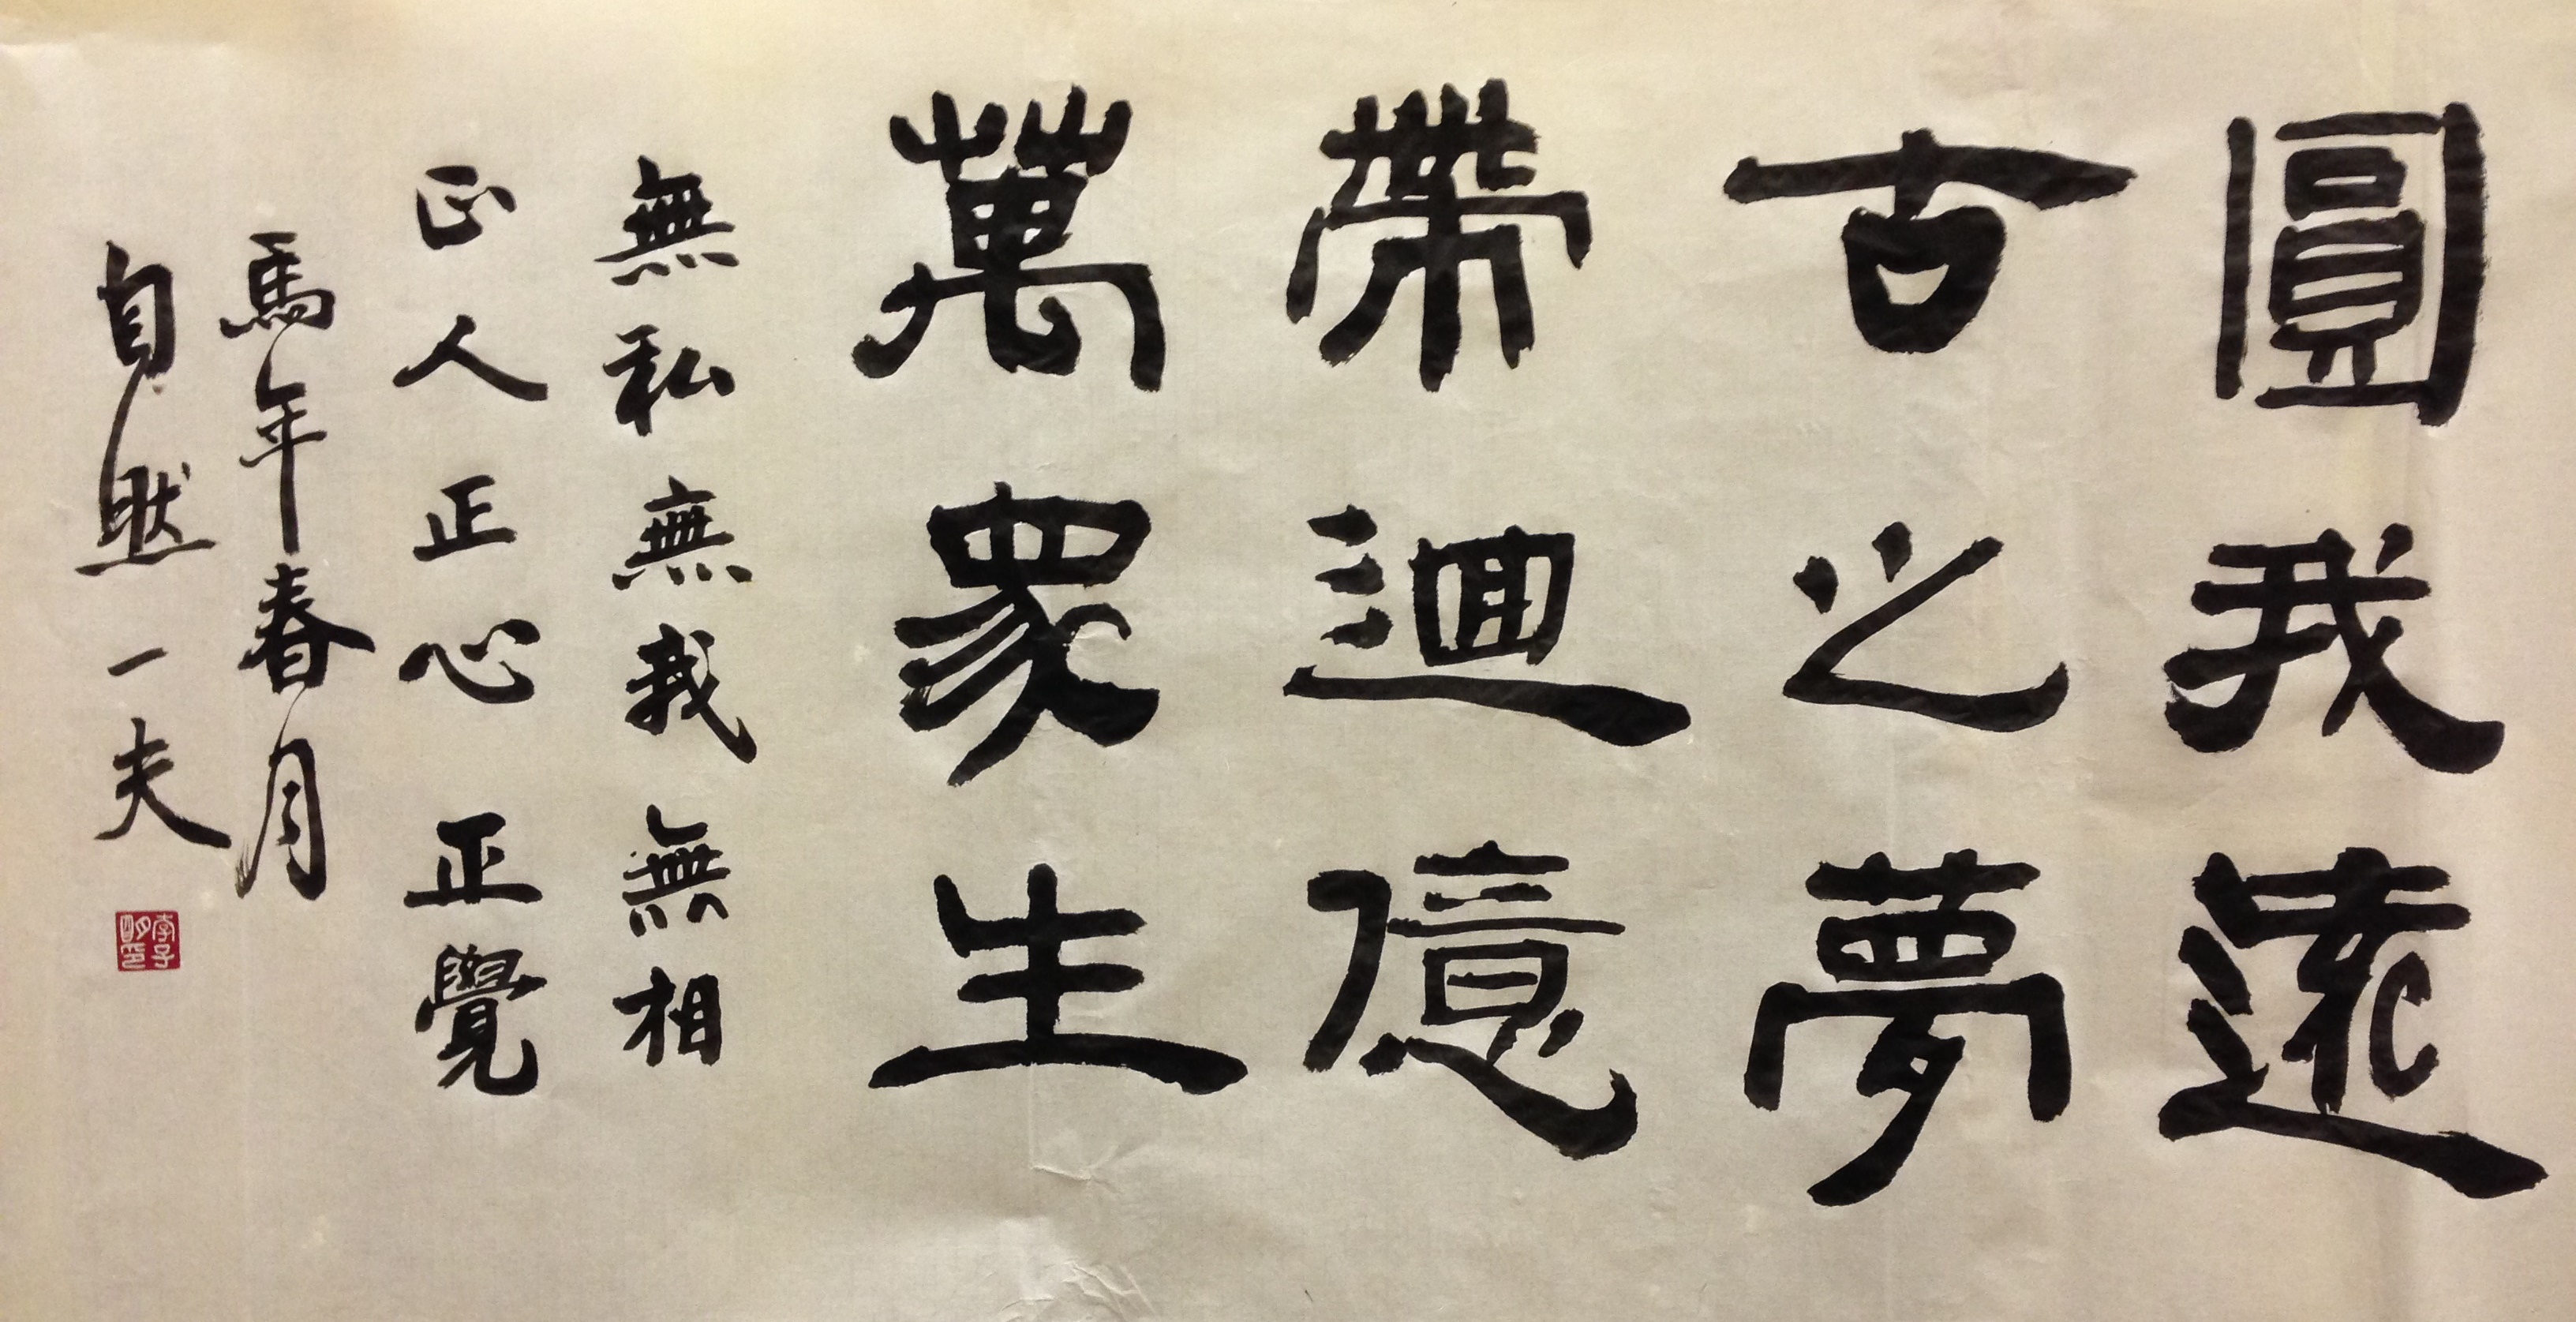 圓我遠
古之夢
帶迴億
萬眾生
無私無我無相
正人正心正覺
馬年春月
自然一夫
李子明印